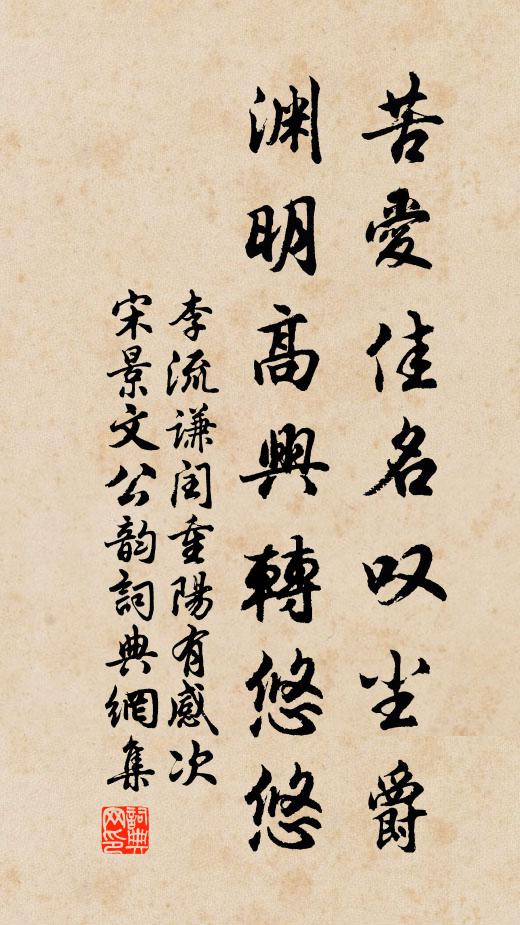 苦愛佳名叹尘爵
渊明高興轉悠悠
李流謙闰重陽有感次
宋景文公韵詞典網集
詞典
网印